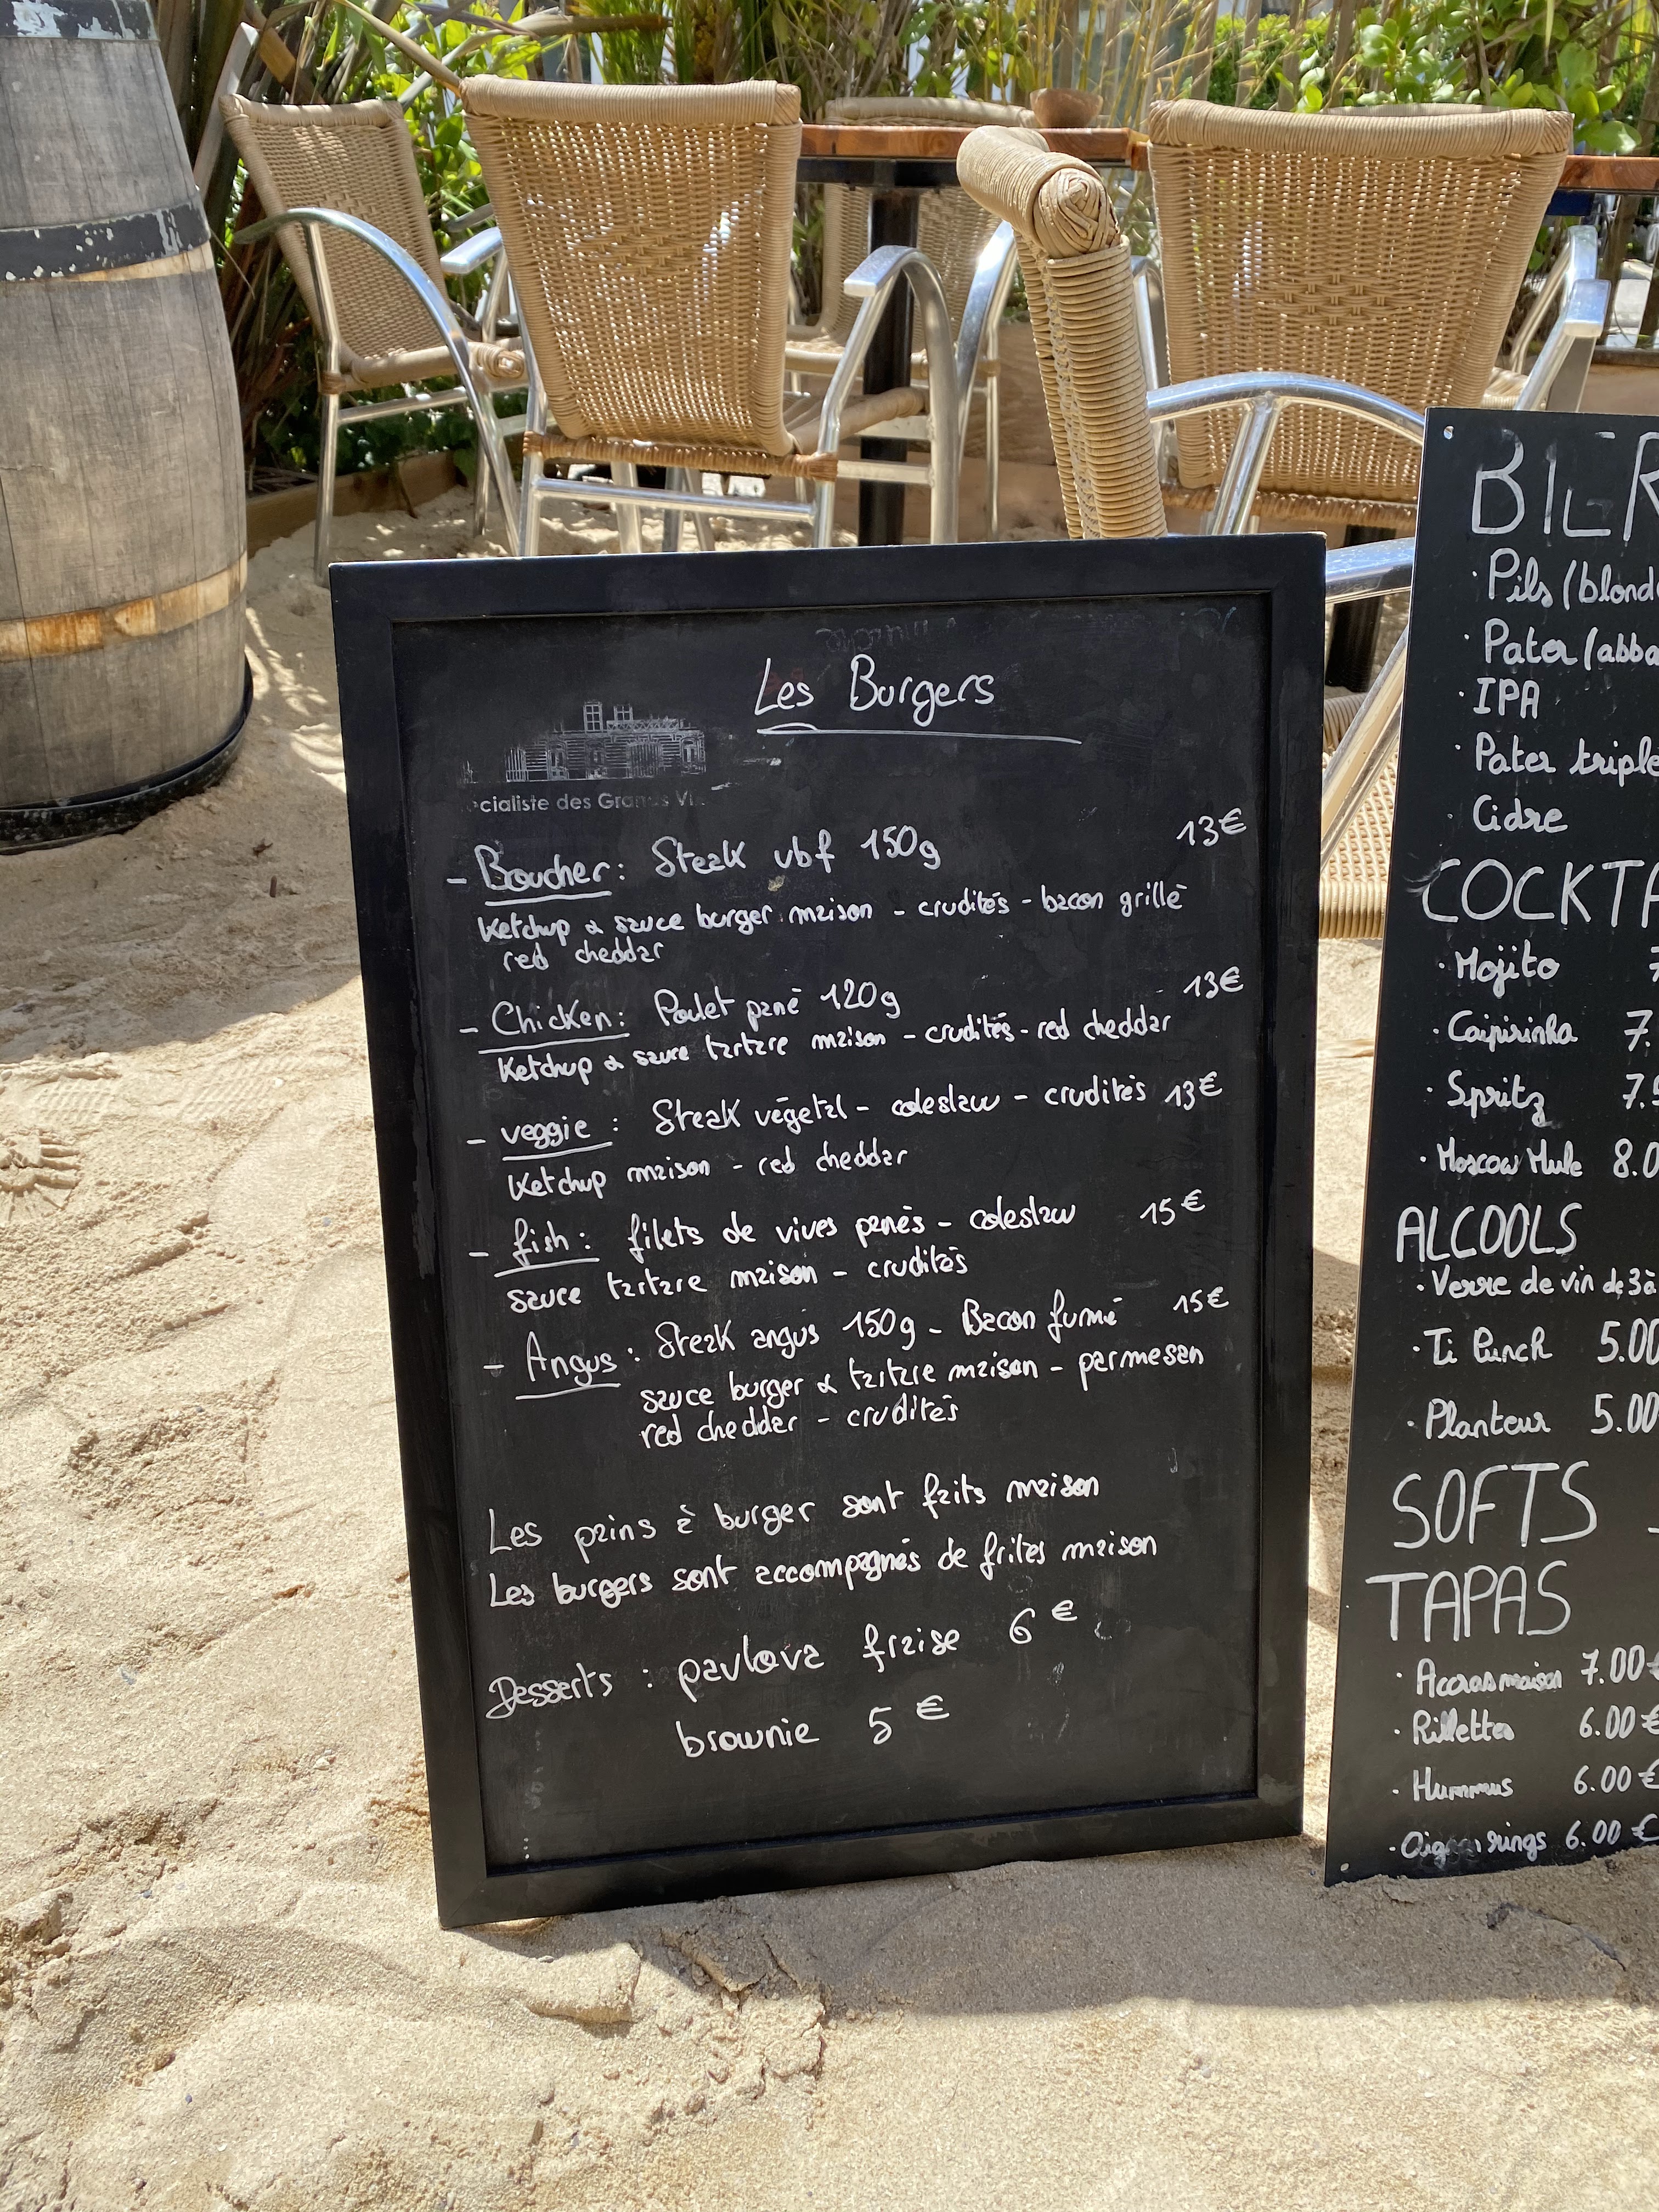 Les Burgers
cialiste des Grands Vi
- Boucher : Steak vbf 150g 13€
Ketchup & sauce burger maison - crudités - bacon grillé
red cheddar
- Chicken : Poulet pané 120g 13€
Ketchup & sauce tartare maison - crudités - red cheddar
- veggie : Steak végétal - coleslaw - crudités 13€
Ketchup maison - red cheddar
- fish : filets de vives panés - coleslaw 15€
sauce tartare maison - crudités
- Angus : Steak angus 150g - Bacon fumé 15€
sauce burger & tartare maison - parmesan
red cheddar - crudités
Les pains à burger sont faits maison
Les burgers sont accompagnés de frites maison
Desserts : pavlova fraise 6€
brownie 5€
BIER
· Pils (blond
· Pater (abba
· IPA
· Pater triple
· Cidre
COCKTA
· Mojito 7
· Caipirinha 7.
· Spritz 7.5
· Moscow Mule 8.0
ALCOOLS
· Verre de vin de 3 à
· Ti Punch 5.00
· Planteur 5.00
SOFTS
TAPAS
· Accras maison 7.00€
· Rillettes 6.00€
· Hummus 6.00€
· Oignon rings 6.00€